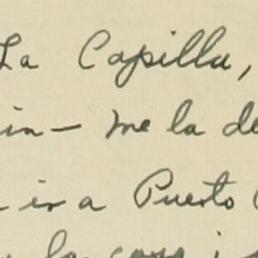 La Capilla,
in— me la de
ir a Puerto
la casa i